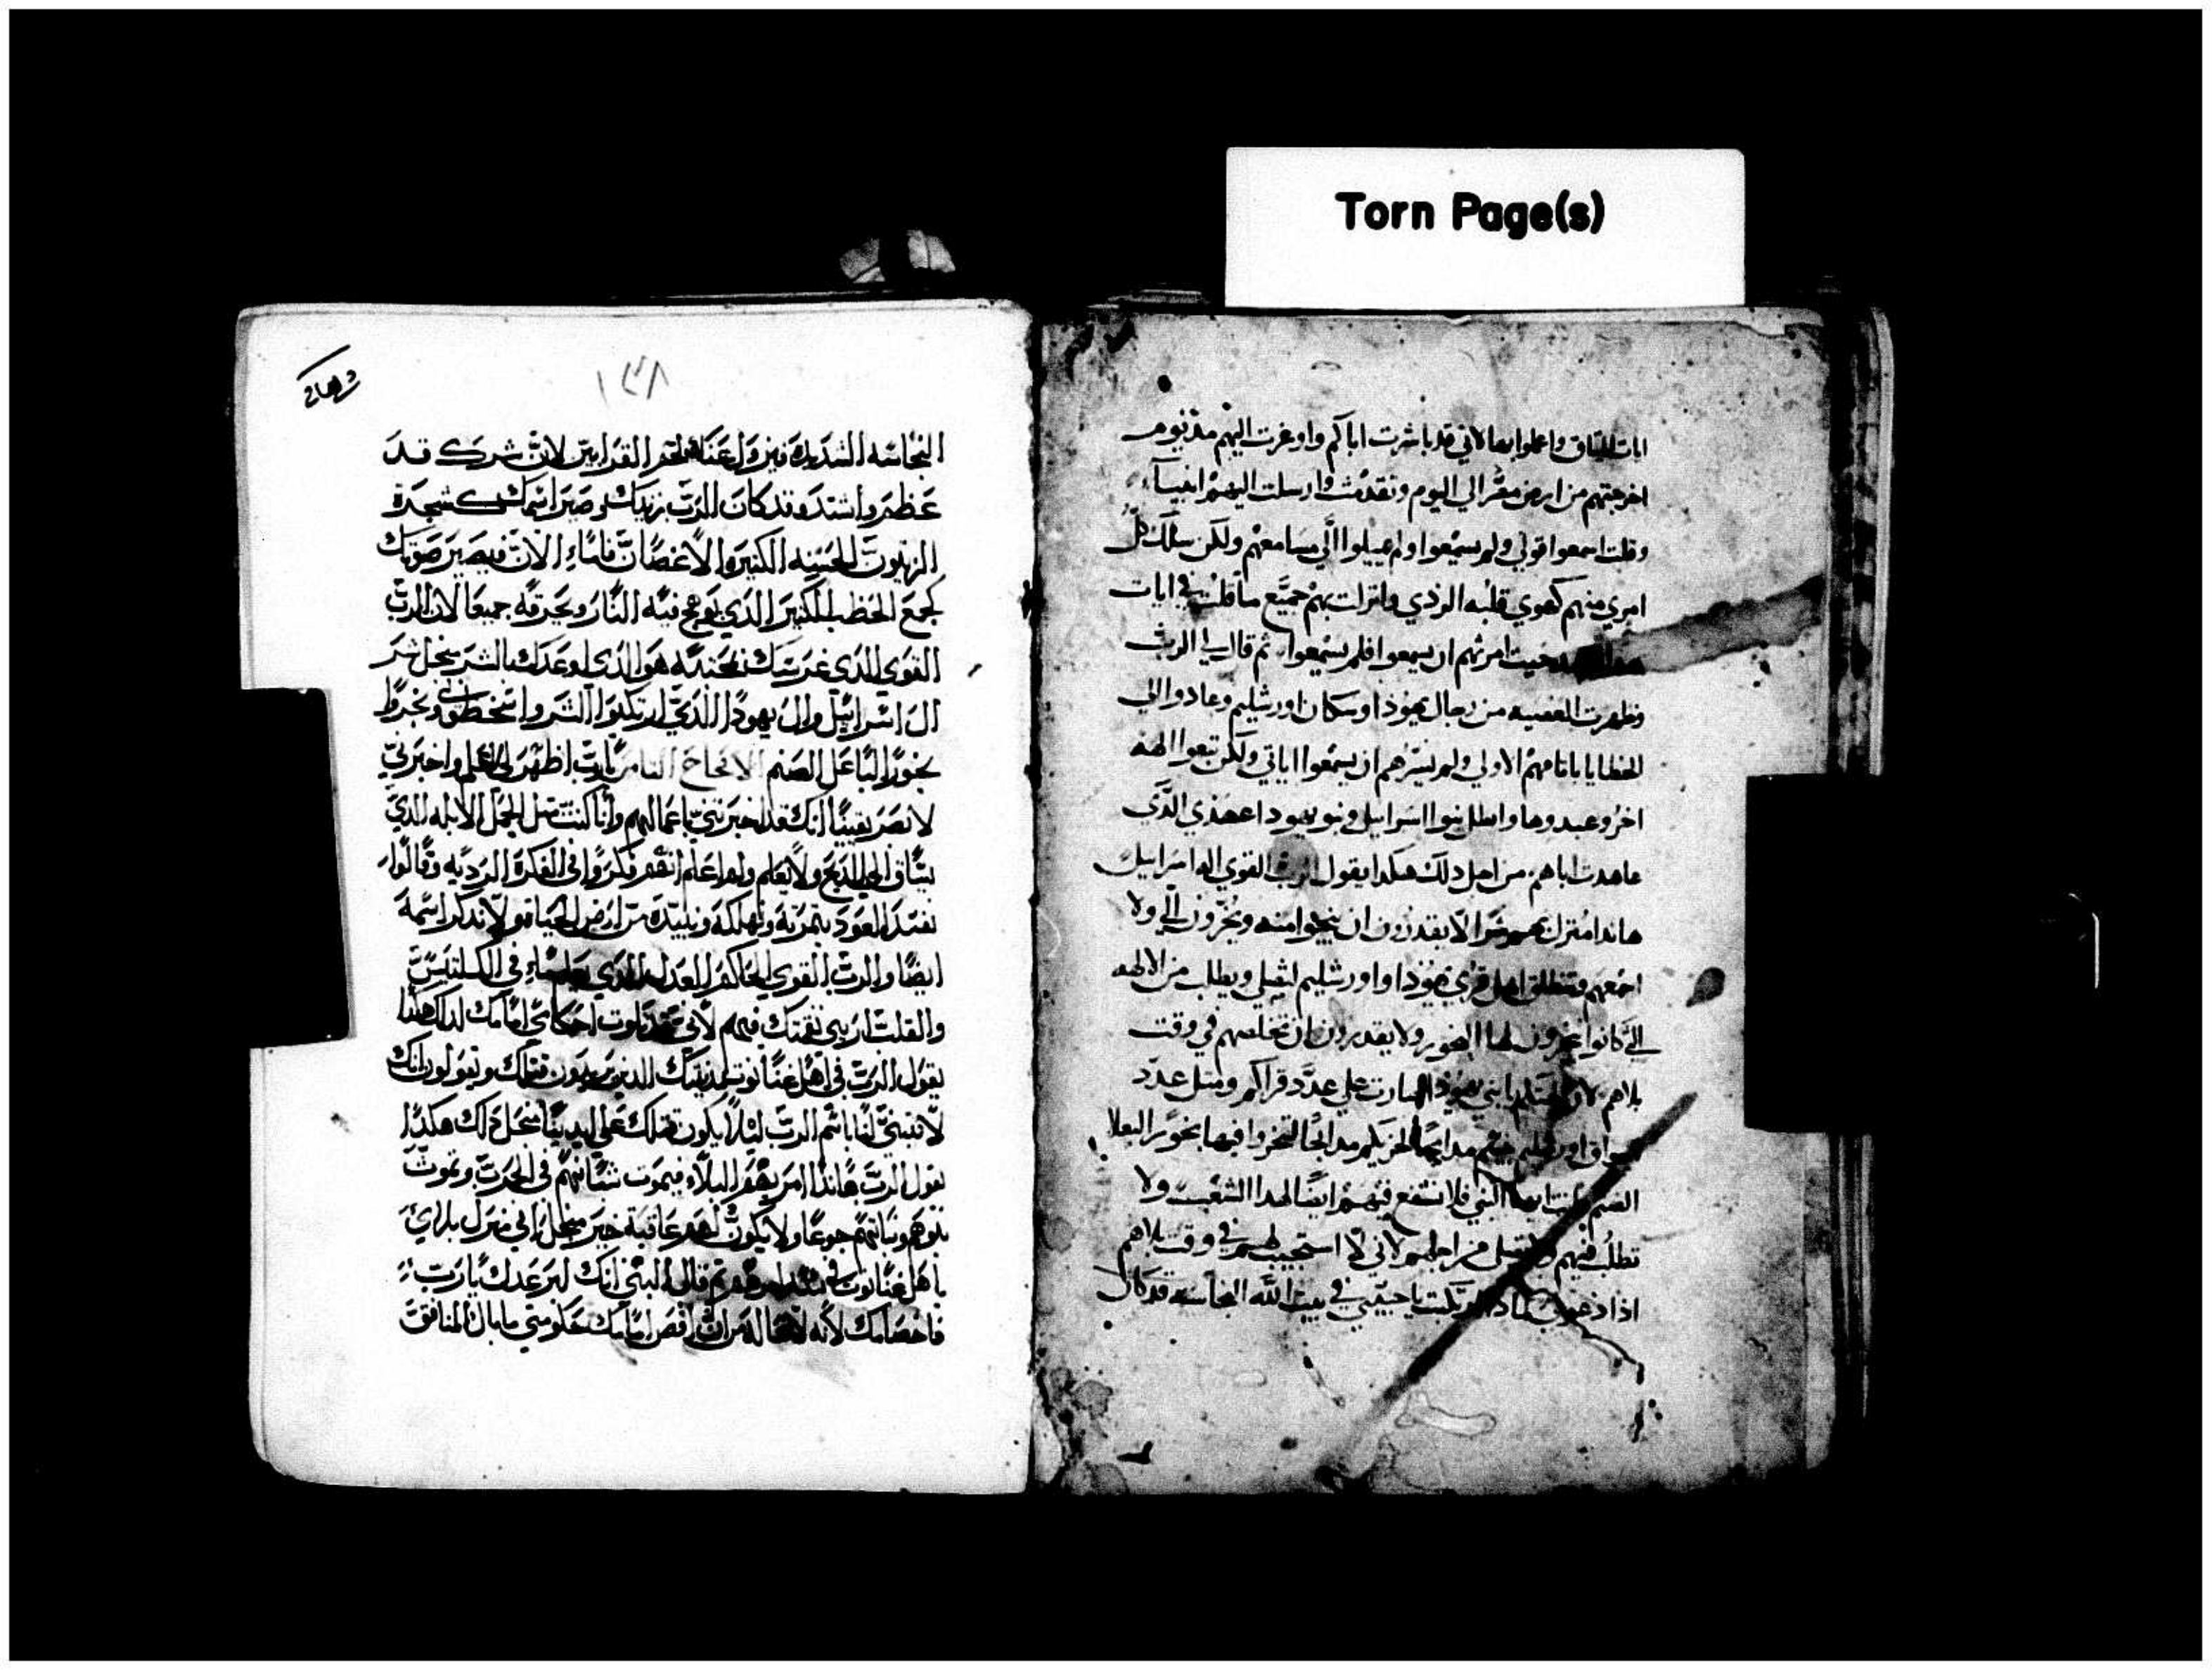 Torn Page(s)
ايات الميثاق واعملوا بها لاني قد باشرت اباكم واوعزت اليهم مذ يوم
اخرجتهم من ارض مصر الي اليوم وتقدمت وارسلت اليهم انبيآء
وقلت اسمعوا قولي ولم يسمعوا ولم يميلوا الَّي مسامعهم ولكن سلك كل
امري منهم كهوي قلبه الردي وانزلت بهم جميع ما قلت في ايات
حيث امرتهم ان يسمعوا فلم يسمعوا ثم قال لي الرب
وظهرت العصيه من رجال يهوذا وسكان اورشليم وعادوا الي
الخطايا باباتهم الاولي ولم يسرهم ان يسمعوا اياتي ولكن تبعوا الهه
اخر وعبدوها وابطل بنوا اسرايل وبنو يهودا عهدي الَّذي
عاهدت اباهم من اجل ذلك هكدا يقول الرب القوي اله اسراييل
هاندا منزل بهم شرا لا يقدرون ان ينجوا منه ويخرون الَّي ولا
اجمعهم فتنطلق اهل قري يهوذا واورشليم ويطلب من الالهه
الَّي كانوا يبخرون لها البخور ولا يقدرون ان تخلصهم في وقت
بلاهم لان يا بني يهوذا صارت علي عدَّد قراكم ومتل عدد
اسواق اورشليم مدابحا لخزيكم مدابحا لتبخروا فيها بخور البعلا
الصنم ايها النبي فلا تشفع فيهم ايضا لهدا الشعب ولا
تطلب فيهم من اجلهم لاني لا استجيب لهم في وقت بلاهم
اذا دعوني يا حبيبتي في بيت الله النجاسه قد كان
١٣٨
النجاسه الشديده فيزول عنك لحم القرابين لان شرك قد
عظم واشتد وقد كان الرب زينك وصير اسمك شجرة
الزيتون الحسنه الكثيره الاغصان فاماء الان فيصير صوتك
كجمع الحطب الكثير الذي يوهج فيه النار ويحرقه جميعا لان الرب
القوي الذي غرسك هو الذي اوعدك بالشر منجل شر
ال اسراييل وال يهوذا الذي ارتكبوا الشر واسخطوني وبخروا
بخور الباعل الصنم الاصحاح الثامن يارب اظهر لي العلم واخبرني
لابصر يقينا انك قد اخبرتني باعمالهم وانا كنت متل الحمل الابله الذي
يساق الي الدبح ولا يعلم ولم اعلم انهم فكروا في الفكرة الرديه وقالوا
نفسد العود بتمرته ونهلكه ونبيده من ارض الحياه ولا يذكر اسمه
ايضا والرب القوي الحاكم العدل الذي في الكليتين
والقلب اريني نقمتك فيهم لاني قد تلوت احكامي امامك لدلك هكذا
يقول الرب في اهل عناتوت الذين يريدون قتلك ويقولون انك
لا تتنبي لنا باسم الرب ليلا يكون قتلك علي ايدينا منجل ذلك هكدا
يقول الرب هاندا امر بهم البلاء فيموت شبانهم في الحرب وتموت
بنوهم وبناتهم جوعا ولا يكون لهم عاقبة خير منجل اني منزل بلائي
باهل عناتوت في تم قال النبي انك لم عدل يارب
فاخصامك لانه امامك حكومتي ما بال المنافق